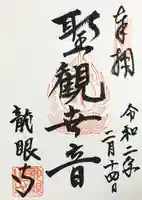 奉拝
令和二年
二月十四日
聖観世音
龍眼寺